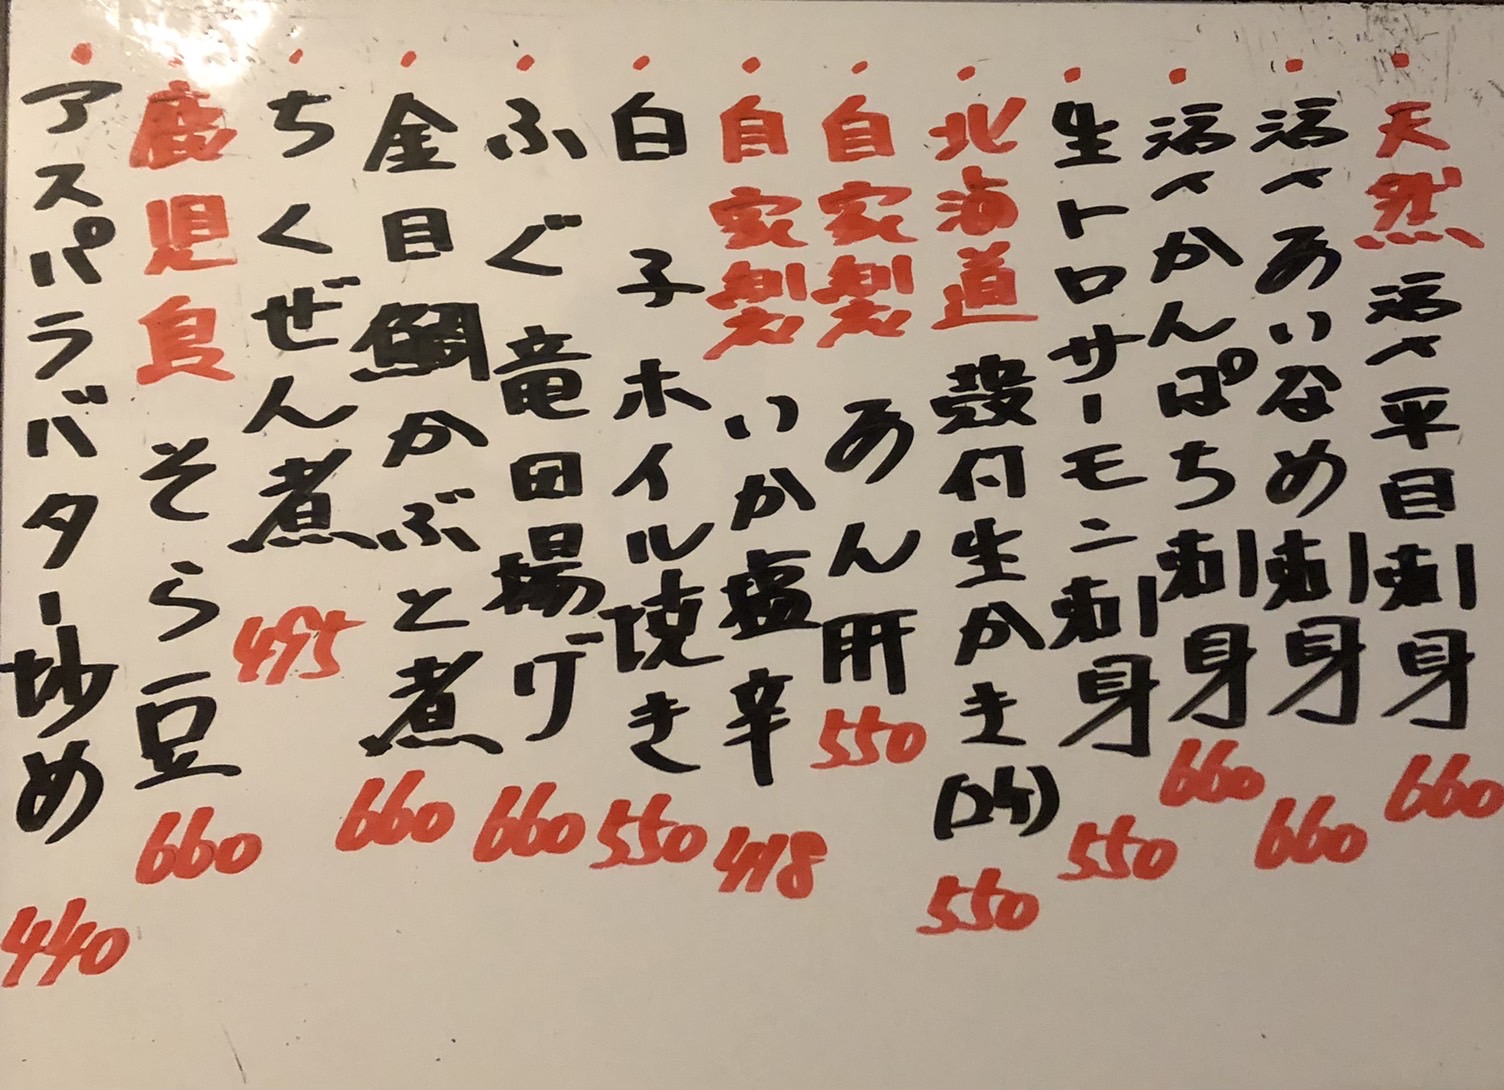 ・天然活〆平目刺身 660
・活〆あいなめ刺身 660
・活〆かんぱち刺身 660
・生トロサーモン刺身 550
・北海道 殻付生かき(2ケ) 550
・自家製 あん肝 550
・自家製 いか塩辛 418
・白子ホイル焼き 550
・ふぐ竜田揚げ 660
・金目鯛かぶと煮 660
・ちくぜん煮 495
・鹿児島 そら豆 660
・アスパラバター炒め 440